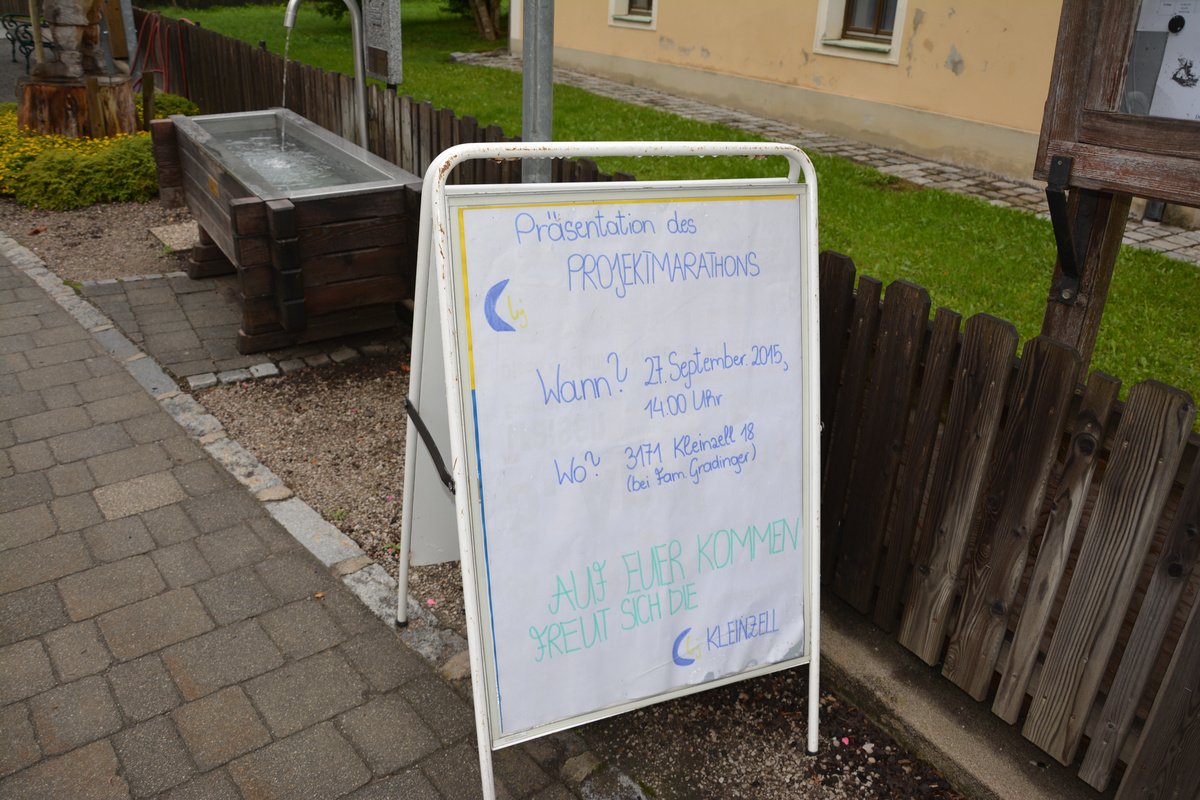 Präsentation des
PROJEKTMARATHONS
lj
Wann? 27. September. 2015,
14.00 Uhr
Wo? 3171 Kleinzell 18
(bei Fam. Gradinger)
AUF EUER KOMMEN
FREUT SICH DIE
lj KLEINZELL